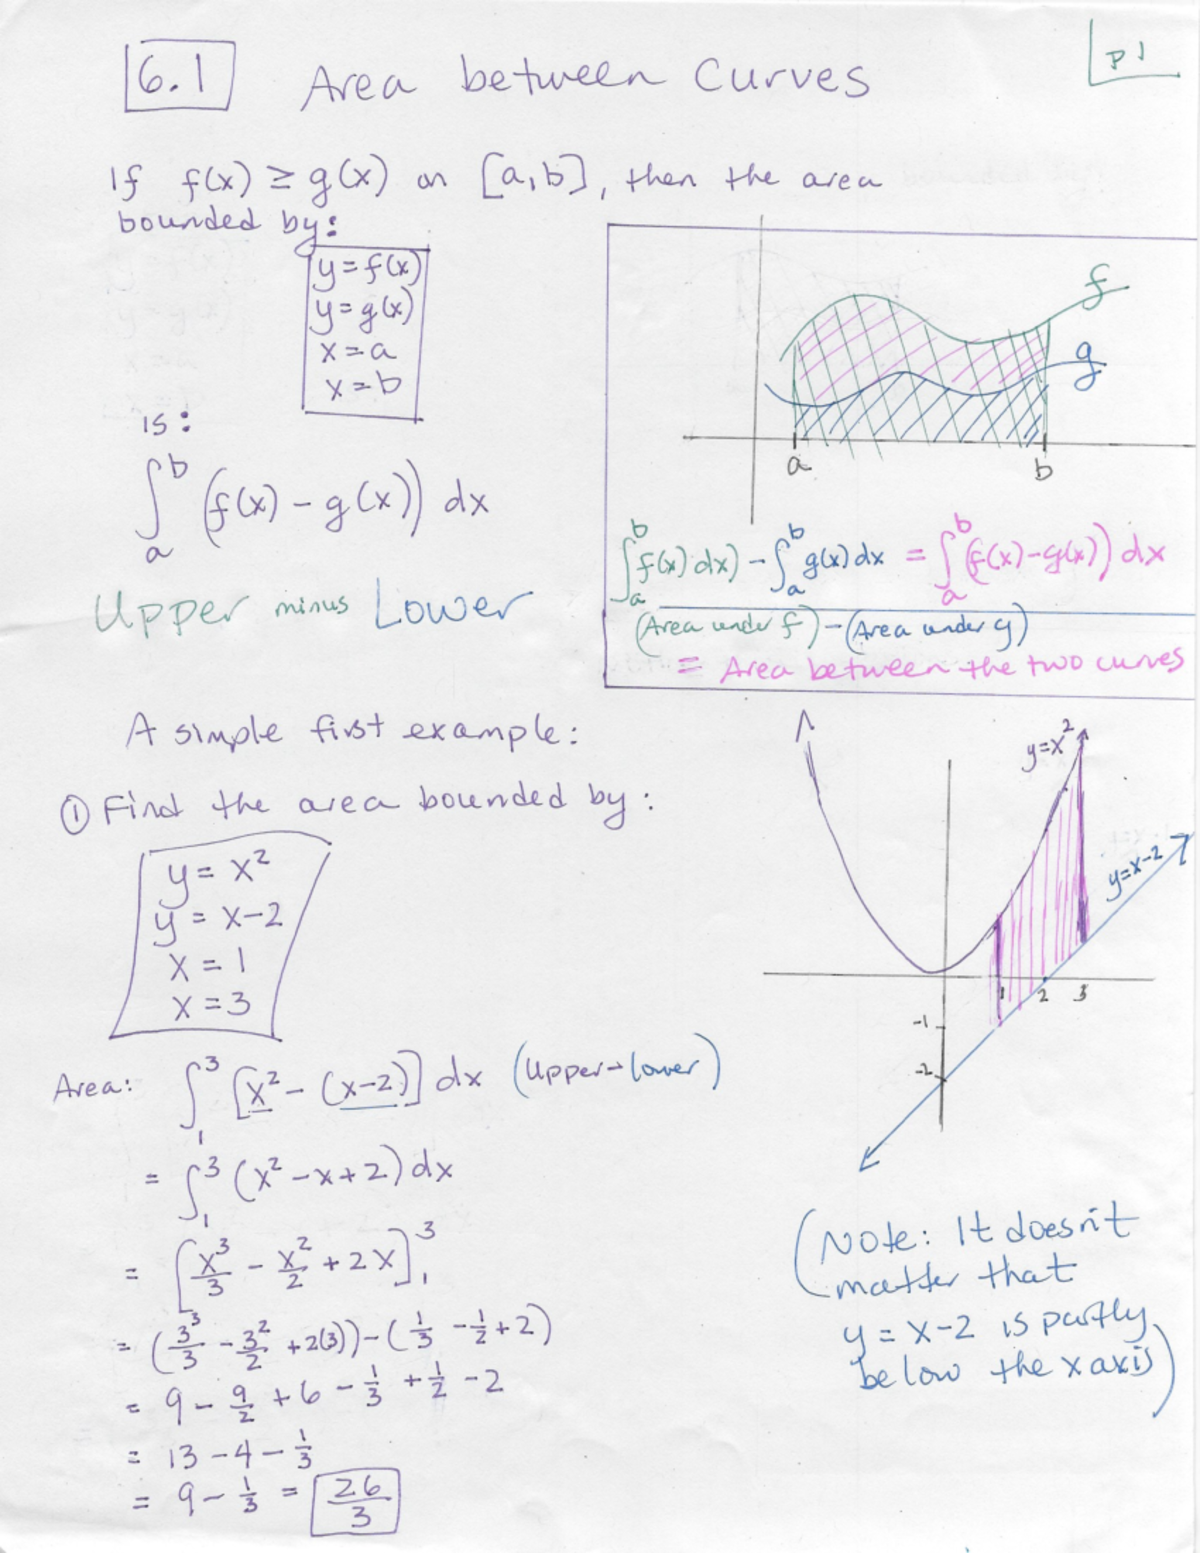 6.1 Area between Curves
P1
If f(x) ≥ g(x) on [a,b], then the area
bounded by:
y = f(x)
y = g(x)
x = a
x = b
is:
∫_a^b (f(x) - g(x)) dx
Upper minus Lower
f
g
a b
∫_a^b f(x) dx) - ∫_a^b g(x) dx = ∫_a^b (f(x)-g(x)) dx
(Area under f) - (Area under g)
= Area between the two curves
A simple first example:
① Find the area bounded by:
y = x²
y = x-2
x = 1
x = 3
y=x²
y=x-2
1 2 3
-1
-2
Area: ∫_1^3 [x² - (x-2)] dx (Upper-lower)
= ∫_1^3 (x² - x + 2) dx
= [x³/3 - x²/2 + 2x]_1^3
= (3³/3 - 3²/2 + 2(3)) - (1/3 - 1/2 + 2)
= 9 - 9/2 + 6 - 1/3 + 1/2 - 2
= 13 - 4 - 1/3
= 9 - 1/3 = 26/3
(Note: It doesn't
matter that
y = x-2 is partly
below the x axis)